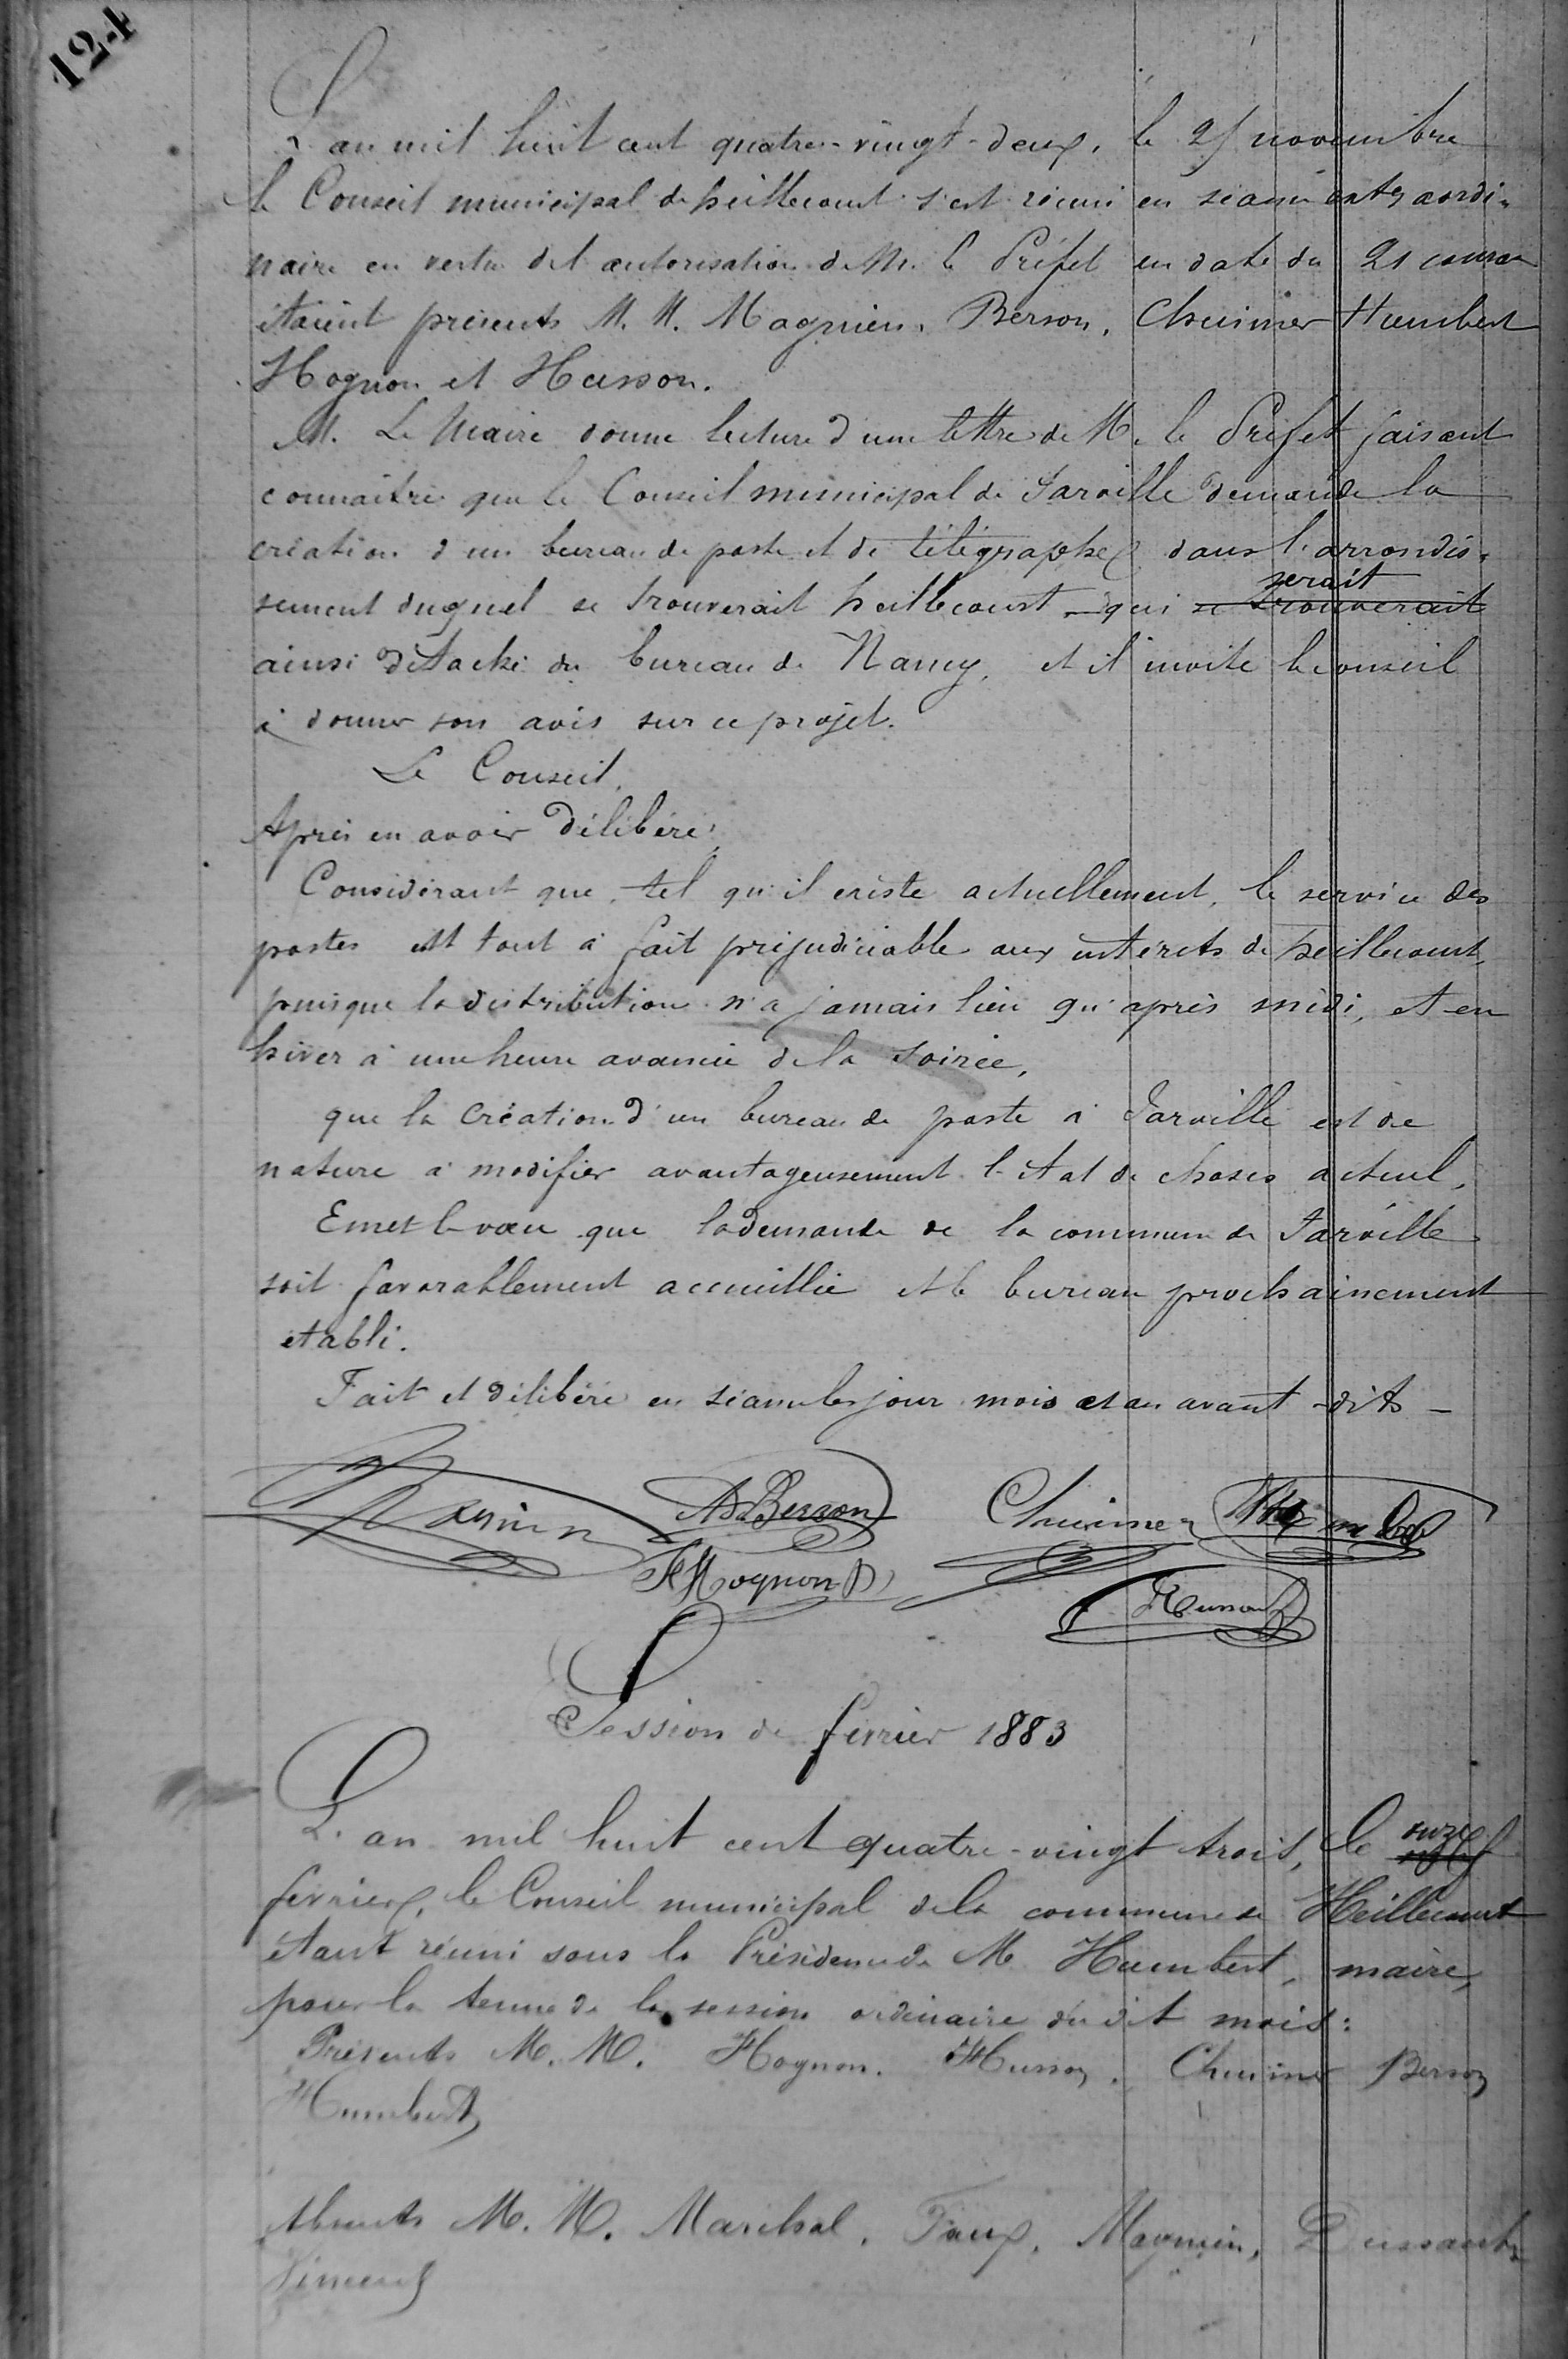 124
L'an mil huit cent quatre-vingt-deux, le 25 novembre
le Conseil municipal de heillecourt s'est réuni en séance extraordi-
naire en vertu de l'autorisation de M. le Préfet en date du 21 courant
étaient présents M. M. Magnien, Berson, Chuimer Humbert
Hognon et Husson.
M. Le Maire donne lecture d'une lettre de M. le Préfet faisant
connaître que le Conseil municipal de Jarville demande la
création d'un bureau de poste et de télégraphe dans l'arrondis-
serait
sement duquel se trouverait heillecourt - qui se trouverait
ainsi détaché du bureau de Nancy, et il invite le conseil
à donner son avis sur ce projet.
Le Conseil,
Après en avoir délibéré,
Considérant que, tel qu'il existe actuellement, le service des
postes est tout à fait préjudiciable aux intérêts de heillecourt,
puisque la distribution n'a jamais lieu qu'après midi, et en
hiver à une heure avancée de la soirée,
que la création d'un bureau de poste à Jarville est de
nature à modifier avantageusement l'état de choses actuel,
Emet le vœu que la demande de la commune de Jarville
soit favorablement accueillie et le bureau prochainement
établi.
Fait et délibéré en séance les jour mois et an avant-dits -
Magnien ABerson Chuimer Humbert
Hognon
Husson
Session de février 1883
L'an mil huit cent quatre-vingt trois, le onze
février, le Conseil municipal de la commune de Heillecourt
étant réuni sous la Présidence de M. Humbert, maire,
pour la tenue de la session ordinaire du dit mois:
Présents M. M. Hognon. Husson, Chuimer Berson
Humbert
Absents M. M. Marchal, Faux, Magnien,
Vincent